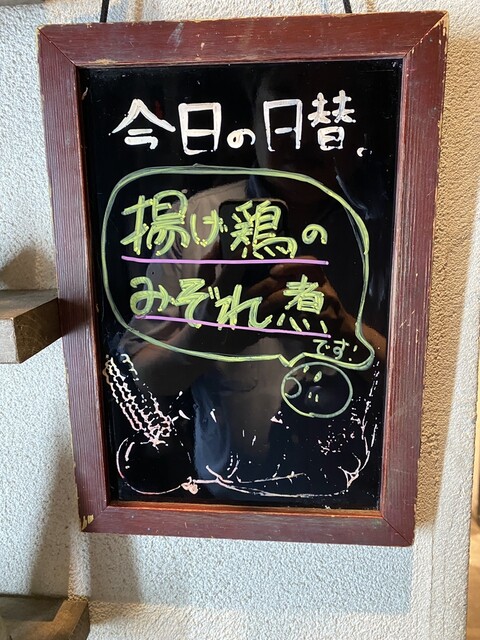 今日の日替、
揚げ鶏の
みぞれ煮
です!